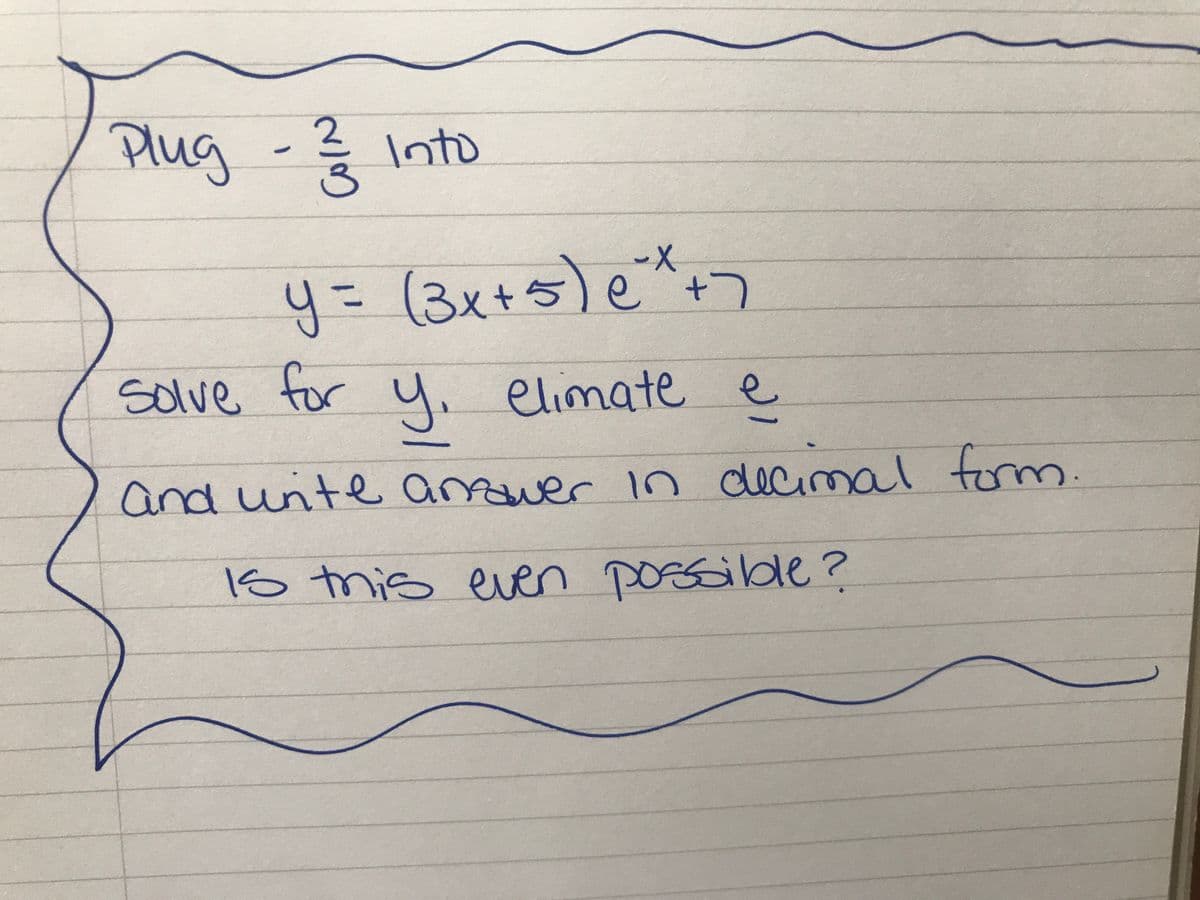 Plug - 2/3 Into
y = (3x+5) e^-x +7
Solve for y. elimate e
and write answer in decimal form.
Is this even possible?